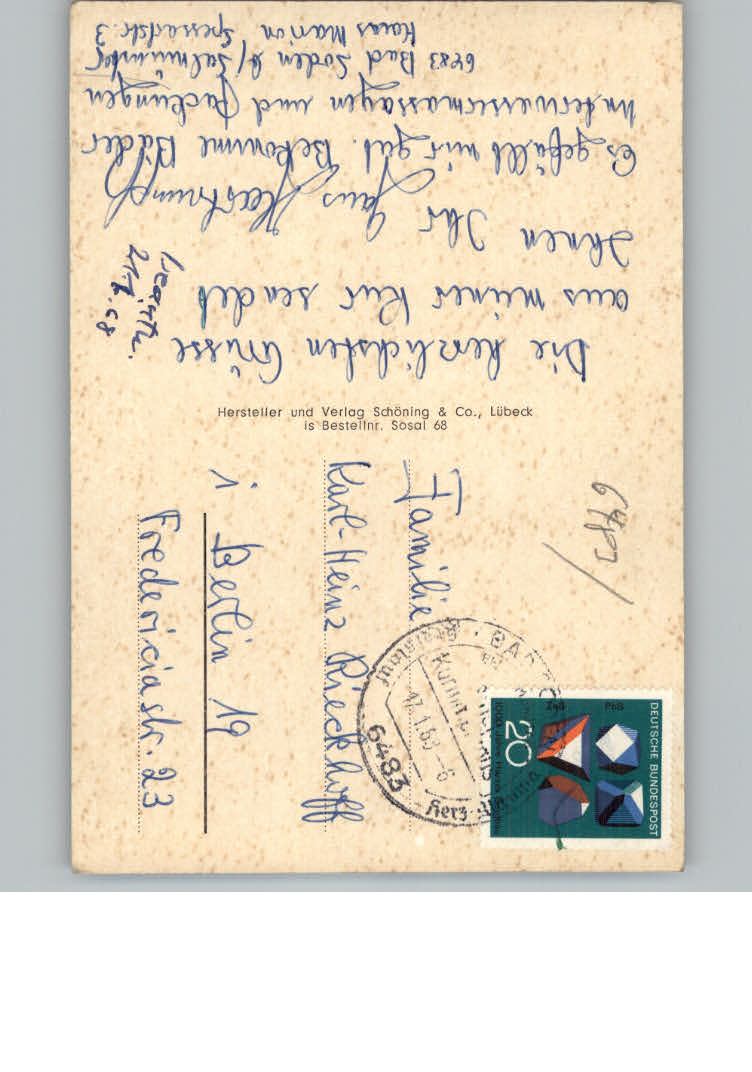 Die herzlichsten Grüsse
aus meiner Kur sendet
Ihnen Ihr
Es gefällt mir gut. Bekomme Bäder
Unterwassermassagen und Packungen
6483 Bad Soden b/ Salmünster
Haus Marion
Spessartstr. 3
21.1.68
Hersteller und Verlag Schöning & Co., Lübeck
is Bestellnr. Sosal 68
Familie
Karl-Heinz Rieckhoff
1 Berlin 19
Fredericiastr. 23
6483
BAD SODEN
6483
Herz
17.1.68-6
DEUTSCHE BUNDESPOST
PbS
ZnS
20
1000 Jahre Harzer Bergbau